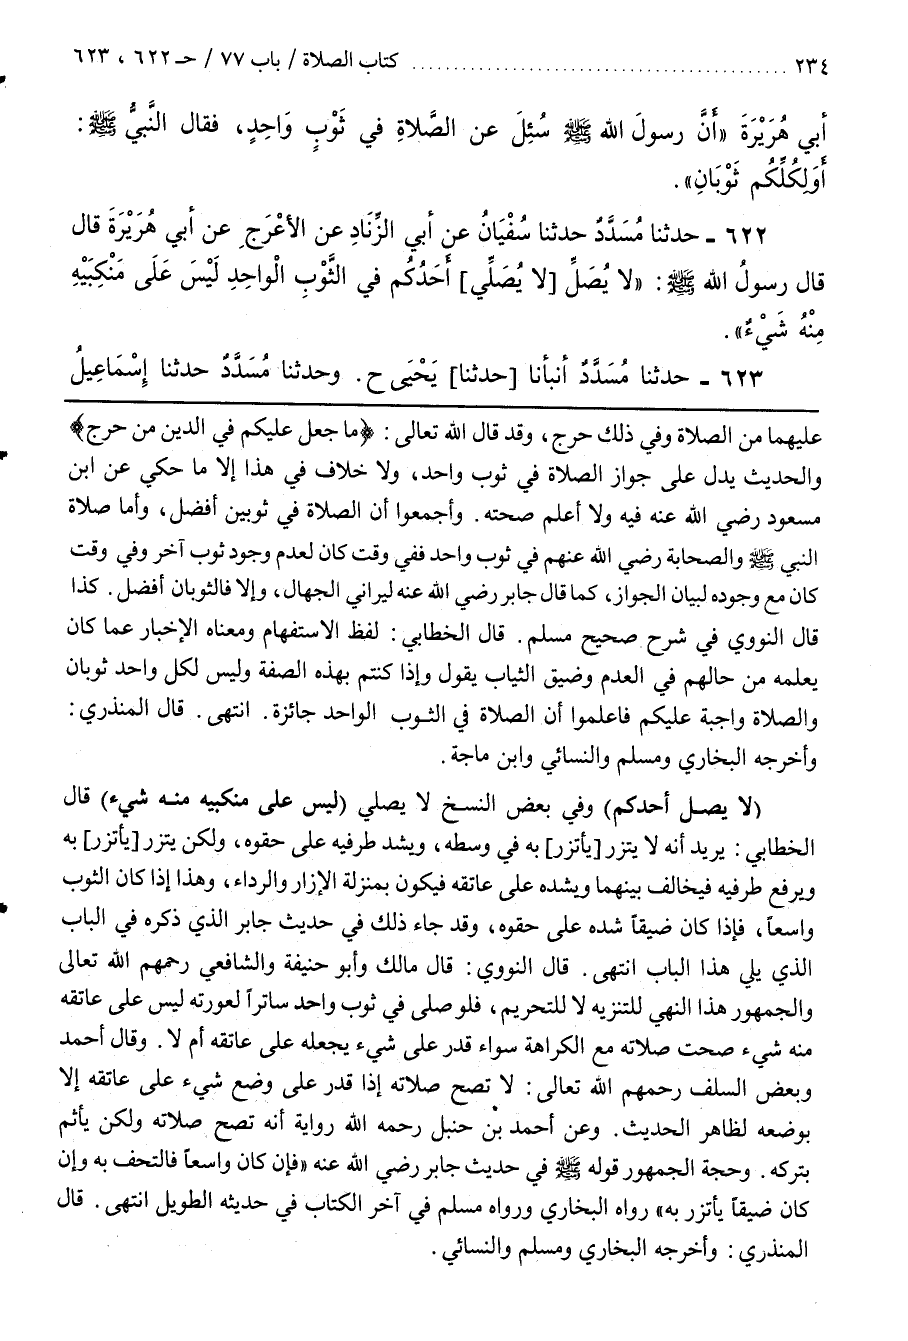 ٢٣٤ ........................................ كتاب الصلاة / باب ٧٧ / حـ ٦٢٢ ، ٦٢٣
أبي هُرَيْرَةَ «أَنَّ رسولَ الله ﷺ سُئِلَ عن الصَّلاةِ في ثَوْبٍ وَاحِدٍ، فقال النَّبيُّ ﷺ :
أَوَلِكُلِّكُم ثَوْبَانِ» .
٦٢٢ ـ حدثنا مُسَدَّدٌ حدثنا سُفْيَانُ عن أبي الزِّنَادِ عن الأعْرَجِ عن أبي هُرَيْرَةَ قال
قال رسولُ الله ﷺ : «لا يُصَلِّ [لا يُصَلِّي] أَحَدُكُم في الثَّوْبِ الْواحِدِ لَيْسَ عَلَى مَنْكِبَيْهِ
مِنْهُ شَيْءٌ» .
٦٢٣ ـ حدثنا مُسَدَّدٌ أنبأنا [حدثنا] يَحْيَى ح . وحدثنا مُسَدَّدٌ حدثنا إسْمَاعِيلُ
عليهما من الصلاة وفي ذلك حرج، وقد قال الله تعالى : ﴿ما جعل عليكم في الدين من حرج﴾
والحديث يدل على جواز الصلاة في ثوب واحد، ولا خلاف في هذا إلا ما حكي عن ابن
مسعود رضي الله عنه فيه ولا أعلم صحته . وأجمعوا أن الصلاة في ثوبين أفضل، وأما صلاة
النبي ﷺ والصحابة رضي الله عنهم في ثوب واحد ففي وقت كان لعدم وجود ثوب آخر وفي وقت
كان مع وجوده لبيان الجواز، كما قال جابر رضي الله عنه ليراني الجهال، وإلا فالثوبان أفضل . كذا
قال النووي في شرح صحيح مسلم . قال الخطابي : لفظ الاستفهام ومعناه الإخبار عما كان
يعلمه من حالهم في العدم وضيق الثياب يقول وإذا كنتم بهذه الصفة وليس لكل واحد ثوبان
والصلاة واجبة عليكم فاعلموا أن الصلاة في الثوب الواحد جائزة . انتهى . قال المنذري :
وأخرجه البخاري ومسلم والنسائي وابن ماجة .
(لا يصل أحدكم) وفي بعض النسخ لا يصلي (ليس على منكبيه منه شيء) قال
الخطابي : يريد أنه لا يتزر [يأتزر] به في وسطه، ويشد طرفيه على حقوه، ولكن يتزر [يأتزر] به
ويرفع طرفيه فيخالف بينهما ويشده على عاتقه فيكون بمنزلة الإزار والرداء، وهذا إذا كان الثوب
واسعاً، فإذا كان ضيقاً شده على حقوه، وقد جاء ذلك في حديث جابر الذي ذكره في الباب
الذي يلي هذا الباب انتهى . قال النووي : قال مالك وأبو حنيفة والشافعي رحمهم الله تعالى
والجمهور هذا النهي للتنزيه لا للتحريم، فلو صلى في ثوب واحد ساتراً لعورته ليس على عاتقه
منه شيء صحت صلاته مع الكراهة سواء قدر على شيء يجعله على عاتقه أم لا . وقال أحمد
وبعض السلف رحمهم الله تعالى : لا تصح صلاته إذا قدر على وضع شيء على عاتقه إلا
بوضعه لظاهر الحديث . وعن أحمد بن حنبل رحمه الله رواية أنه تصح صلاته ولكن يأثم
بتركه . وحجة الجمهور قوله ﷺ في حديث جابر رضي الله عنه «فإن كان واسعاً فالتحف به وإن
كان ضيقاً يأتزر به» رواه البخاري ورواه مسلم في آخر الكتاب في حديثه الطويل انتهى . قال
المنذري : وأخرجه البخاري ومسلم والنسائي .